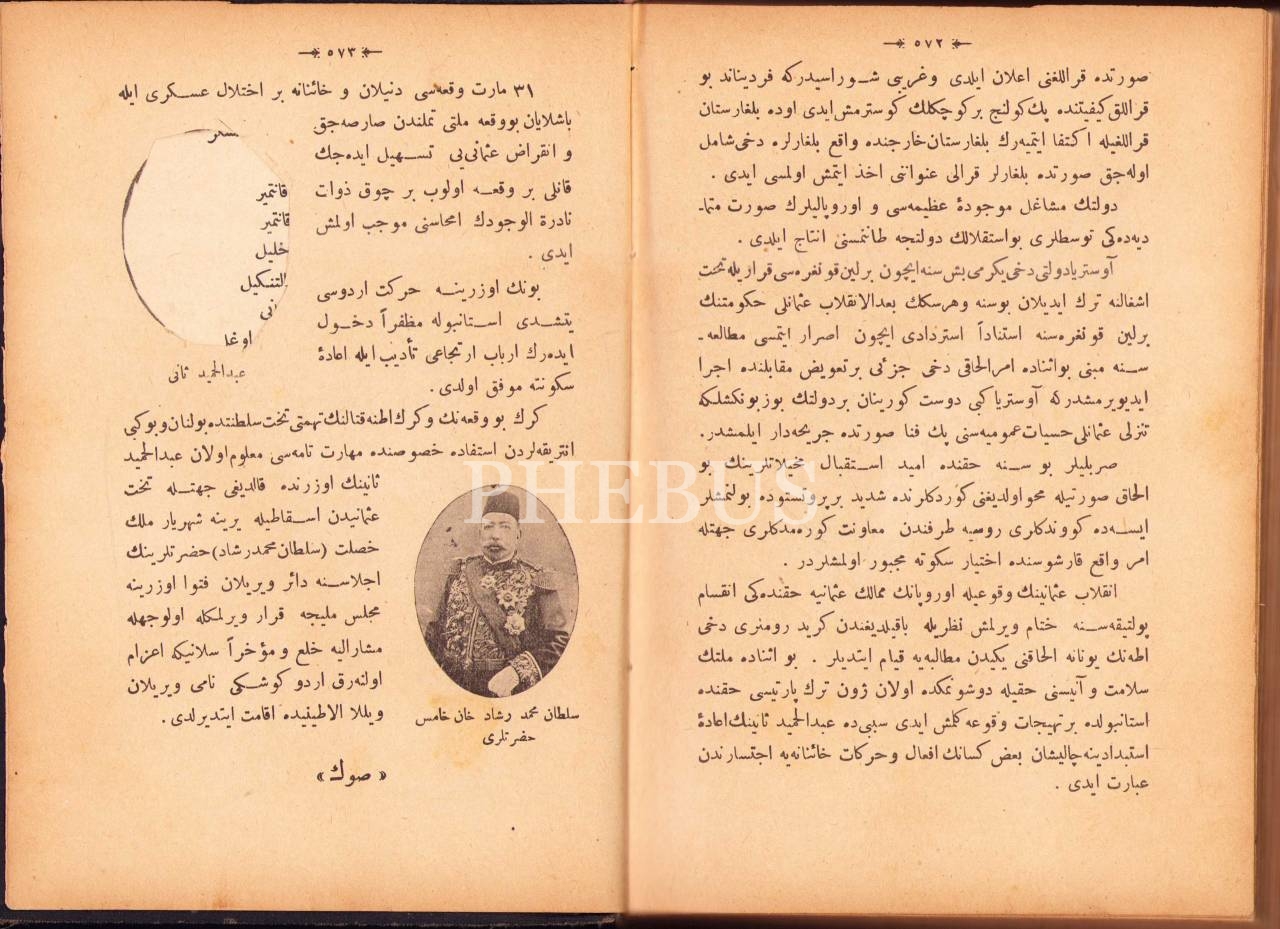 ٥٧٢
صورتده قراللغنی اعلان ایلدی وغریبی شوراسیدركه فردیناند بو
قراللق كیفیتنده پك كولنج بركوچكلك كوسترمش ایدی اوده بلغارستان
قراللغیله اكتفا ایتمیه‌رك بلغارستان خارجنده واقع بلغارلره دخی شامل
اوله‌جق صورتده بلغارلر قرالی عنواننی اخذ ایتمش اولمسی ایدی .
دولتك مشاغل موجودهٔ عظیمه‌سی و اوروپالیلرك صورت متما-
دیه‌ده‌كی توسطلری بواستقلالك دولتجه طانتمسنی انتاج ایلدی .
آوستریادولتی دخی یكرمی بش سنه ایچون برلین قونغره‌سی قراریله تحت
اشغالنه ترك ایدیلان بوسنه وهرسكك بعدالانقلاب عثمانلی حكومتنك
برلین قونغره‌سنه استناداً استردادی ایچون اصرار ایتمسی مطالعه-
سنه مبنی بواثناده امرالحاقی دخی جزئی برتعویض مقابلنده اجرا
ایدیویرمشدركه آوستریا كبی دوست كورینان بردولتك بوزبونكشلكه
تنزلی عثمانلی حسیات عمومیه‌سنی پك فنا صورتده جریحه‌دار ایلمشدر.
صربلیلر بو سنه حقنده امید استقبال مخیلاتلرینك بو
الحاق صورتیله محواولدیغنی كوردكلرنده شدید برپروتستوده بولنمشلر
ایسه‌ده كووندكلری روسیه طرفندن معاونت كوره‌مدكلری جهتله
امر واقع قارشوسنده اختیار سكوته مجبور اولمشلردر .
انقلاب عثمانینك وقوعیله اوروپانك ممالك عثمانیه حقنده‌كی انقسام
پولتیقه‌سنه ختام ویرلمش نظریله باقیلدیغندن كرید رومنری دخی
اطه‌نك یونانه الحاقنی یكیدن مطالبه‌یه قیام ایتدیلر . بو اثناده ملتك
سلامت و آتیسنی حقیله دوشونمكده اولان ژون ترك پارتیسی حقنده
استانبولده برتهیجات وقوعه كلمش ایدی سببی ده عبدالحمید ثانینك اعادهٔ
استبدادینه چالیشان بعض كسانك افعال وحركات خائنانه‌یه اجتسارندن
عبارت ایدی .
٥٧٣
٣١ مارت وقعه‌سی دنیلان و خائنانه بر اختلال عسكری ایله
باشلایان بووقعه ملتی تملندن صارصه‌جق
و انقراض عثمانی‌یی تسهیل ایده‌جك
قانلی بر وقعه اولوب بر چوق ذوات
نادرة الوجودك امحاسنی موجب اولمش
ایدی .
قانتمیر
قانتمیر
خلیل
التنكیل
نی
اوغا
عبدالحمید ثانی
بونك اوزرینه حركت اردوسی
یتشدی استانبوله مظفراً دخول
ایده‌رك ارباب ارتجاعی تأدیب ایله اعادهٔ
سكونته موفق اولدی .
كرك بووقعه‌نك وكرك اطنه قتالنك تهمتی تحت سلطنتده بولنان وبوكبی
انتریقه‌لردن استفاده خصوصنده مهارت تامه‌سی معلوم اولان عبدالحمید
ثانینك اوزرنده قالدیغی جهتله تخت
عثمانیدن اسقاطیله یرینه شهریار ملك
خصلت (سلطان محمد رشاد) حضرتلرینك
اجلاسنه دائر ویریلان فتوا اوزرینه
مجلس ملیجه قرار ویرلمكله اولوجهله
مشارالیه خلع و مؤخراً سلانیكه اعزام
اولنه‌رق اردو كوشكی نامی ویریلان
ویللا الاطینیده اقامت ایتدیرلدی .
سلطان محمد رشاد خان خامس
حضرتلری
« صوك »
PHEBUS